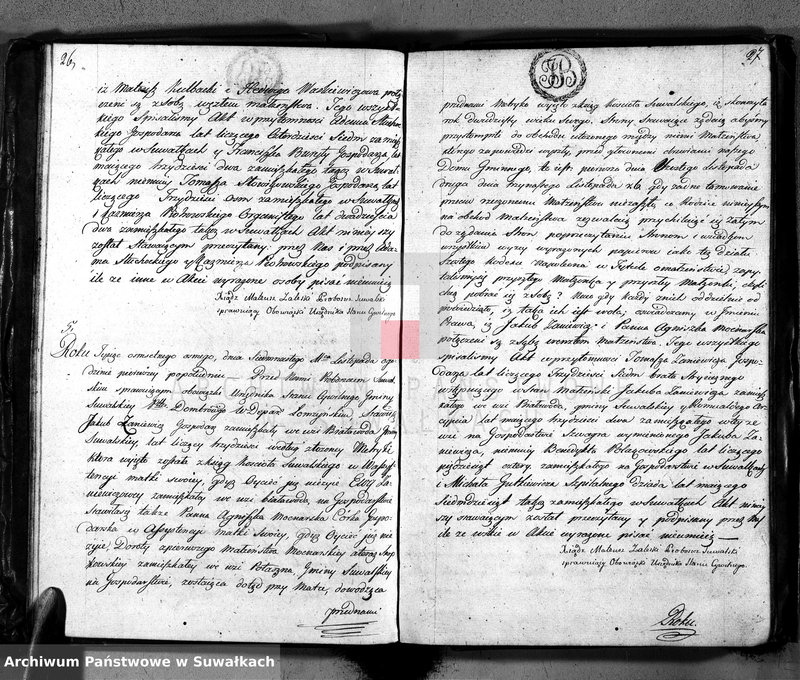 26,
iż Mateusz Kulbacki i Jadwiga Waskiewiczowa połą-
czeni są z sobą węzłem małżeństwa. Tego wszyst-
kiego Spisaliśmy Akt w przytomności Adama Stachoc-
kiego Gospodarza lat liczącego Czterdzieści Siedm zamiesz-
kałego w Suwałkach y Franciszka Gospodarza, lat
mającego trzydzieści dwa zamieszkałego także w Suwał-
kach niemniej Tomasza Gospodarza, lat
liczącego Trzydzieści ośm zamieszkałego w Suwałkach
i Kazimierza Piotrowskiego Organisty lat dwadzieścia
dwa zamieszkałego także w Suwałkach Akt niniejszy
został Stawaiącym przeczytany, przez Nas i przez Ada-
ma Stachockiego y Kazimierza Piotrowskiego podpisany
ile że inne w Akcie wyrażone osoby pisać nieumieią
Xiądz Mateusz Zaleski Proboszcz Suwalski
sprawuiący Obowiązki Urzędnika Stanu Cywilnego.
5.
Roku Tysiąc ośmsetnego ósmego, dnia Siedmnastego Mca Listopada o go-
dzinie pierwszey popołudniu. Przed Nami Proboszczem Suwal-
skim sprawuiącym obowiązki Urzędnika Stanu Cywilnego, Gminy
Suwalskiey Pttu Dombrowskiego w Depart. Łomżyńskim, Stawił się
Jakub Zaniewicz Gospodarz zamieszkały we wsi Białowoda Gminy
Suwalskiey, lat liczący trzydzieści według złożoney Metryki
która wyięta została z ksiąg kościoła Suwalskiego w Assys-
tencyi matki swoiey, gdyż Oyciec iuż nieżyie Ewy Za-
niewiczowey zamieszkałey we wsi białowoda, na Gospodarstwie
Stawiła się także Panna Agnieszka Mocnarska Córka Gospo-
darska w Assystencyi matki Swoiey, gdyż Oyciec iuż nie
żyie, Doroty z pierwszego Małżeństwa Mocnarskiey a teraz
zamieszkałey we wsi Potaszna Gminy Suwalskiey
na Gospodarstwie, zostaiąca dotąd przy Matce, dowodząca
przednami
27.
przednami Metryką wyiętą z ksiąg kościoła Suwalskiego, iż skończyła
rok dwudziesty wieku Swego. Strony Stawaiące żądaią abyśmy
przystąpili do obchodu ułożonego między niemi Małżeństwa
którego zapowiedzi wyszły, przed głównemi drzwiami naszego
Domu Gminnego, to iest: pierwsza dnia Szóstego Listopada
druga dnia trzynastego Listopada r.b. gdy żadne tamowanie
przeciw rzeczonemu Małżeństwu niezaszło, a Rodzice ninieyszym
na obchod Małżeństwa zezwalaią, przychylaiąc się zatym
do żądania Stron po przeczytaniu Stronom i świadkom
wszystkich wyżey wyrażonych papierów iako też działu
Szóstego Kodexu Napoleona w Tytule o małżeństwie, zapy-
taliśmy się przyszłego Małżonka y przyszłey Małżonki, czyli
chcą pobrać się z sobą? Na co gdy każdy z nich oddzielnie od-
powiedziało, iż taka ich iest wola; oświadczamy w Imieniu
Prawa, iż Jakub Zaniewicz i Panna Agnieszka Mocnarska
połączeni są z sobą węzłem Małżeństwa. Tego wszystkiego
spisaliśmy Akt w przytomności Tomasza Zaniewicza Gospo-
darza lat liczącego Trzydzieści Siedm brata Stryiecznego
wstępuiącego w Stan Małżeński Jakuba Zaniewicza zamiesz-
kałego we wsi Białowoda, gminy Suwalskiey y Romualdego
lat maiącego trzydzieści dwa zamieszkałego w tey że
wsi na Gospodarstwie Szwagra wymienionego Jakuba Za-
niewicza, niemniey Benedykta Błażewskiego lat liczącego
pięćdziesiąt cztery, zamieszkałego na Gospodarstwie w Suwałkach
i Michała Gutkiewicza Szpitalnego dziada lat maiącego
Siedmdziesiąt także zamieszkałego w Suwałkach Akt niniey-
szy stawaiącym został przeczytany y podpisany przez Nas
ile że wszyscy w Akcie wyrażone pisać nieumieią —
Xiądz Mateusz Zaleski Proboszcz Suwalski
sprawuiący Obowiązki Urzędnika Stanu Cywilnego.
Roku
Archiwum Państwowe w Suwałkach